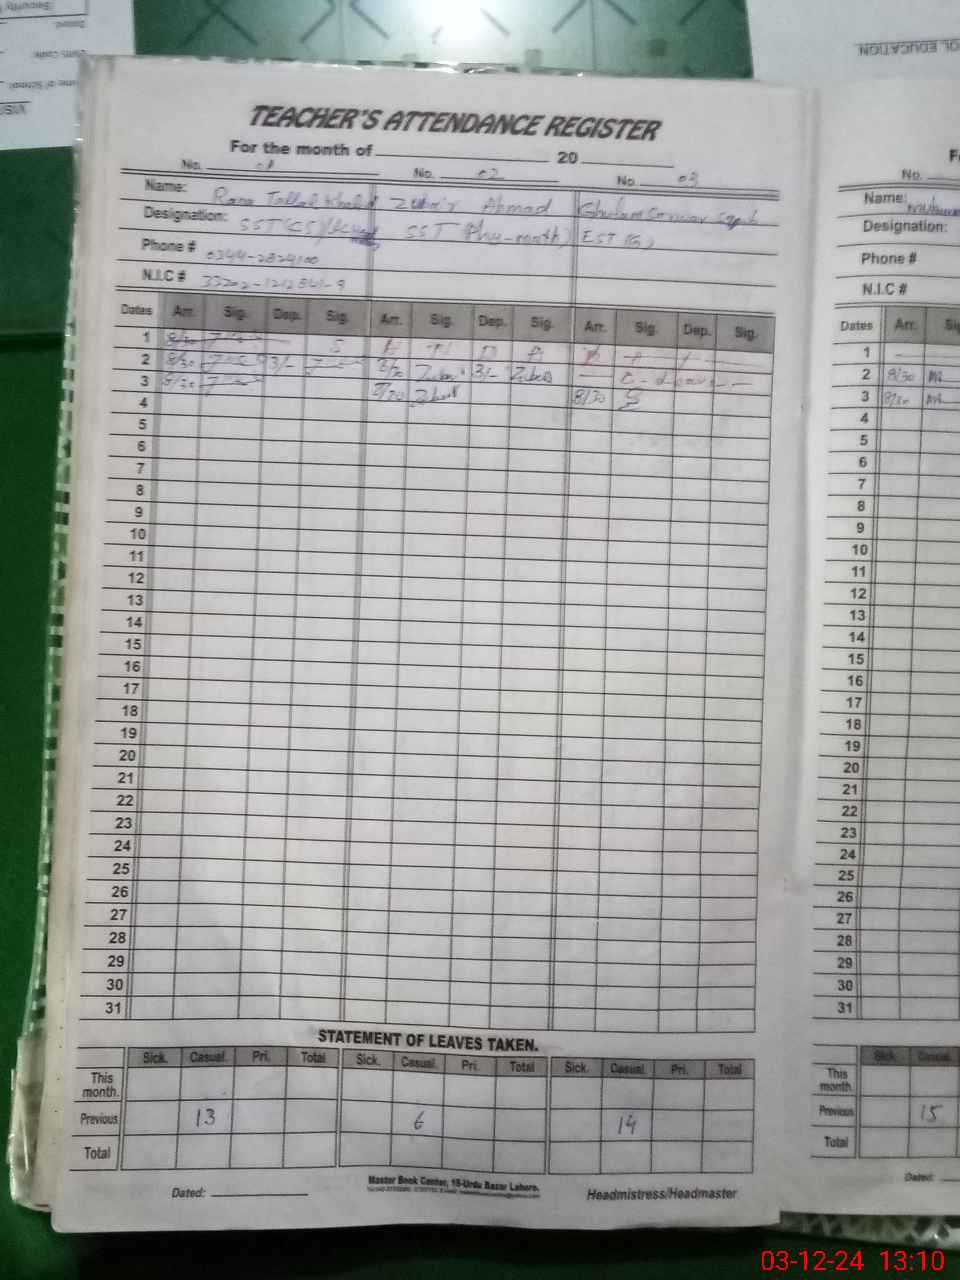 Security
OL EDUCATION
me of School
TEACHER'S ATTENDANCE REGISTER
For the month of 20
No. 01 No. 02 No. 03
Name: Rana Tallal Khalid Zubair Ahmad Ghulam Sarwar
Designation: SST (CS) SST (Phy-math) EST (G)
Phone # 0344-2824100
N.I.C # 33202-1212861-9
Dates Arr. Sig. Dep. Sig. Arr. Sig. Dep. Sig. Arr. Sig. Dep. Sig.
1 8/30 S
2 8/30 3/- 8/30 Zubair 3/- Zubair
3 8/30 8/30 Zubair 8/30
4
5
6
7
8
9
10
11
12
13
14
15
16
17
18
19
20
21
22
23
24
25
26
27
28
29
30
31
STATEMENT OF LEAVES TAKEN.
Sick. Casual. Pri. Total Sick. Casual. Pri. Total Sick. Casual. Pri. Total
This month.
Previous 13 6 14
Total
Dated:
Master Book Center, 18-Urdu Bazar Lahore.
Headmistress/Headmaster
No.
Name:
Designation:
Phone #
N.I.C #
Dates Arr.
1
2 8/30
3 8/30
4
5
6
7
8
9
10
11
12
13
14
15
16
17
18
19
20
21
22
23
24
25
26
27
28
29
30
31
Sick. Casual
This month.
Previous 15
Total
Dated:
03-12-24 13:10